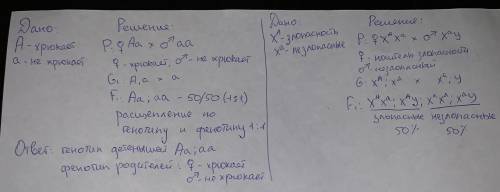 Дано:
А-хрюкает
а-не хрюкает
Решение:
P: ♀ Аа × ♂ аа
♀ - хрюкает, ♂ - не хрюкает
G: А, а × а
F₁: Аа; аа - 50/50 (1:1)
расщепление по
генотипу и фенотипу 1:1
Ответ: генотип детенышей Аа; аа
фенотип родителей: ♀ - хрюкает
♂ - не хрюкает
Дано
Xᴬ-злопасность
Xᵃ-незлопасные
Решение:
P: ♀ XᴬXᵃ × ♂ Xᵃy
♀ - носитель злопасность
♂ - незлопасный
G: Xᴬ; Xᵃ × Xᵃ; y
F₁: XᴬXᵃ; Xᴬy; XᵃXᵃ; Xᵃy
злопасные незлопасные
50% 50%